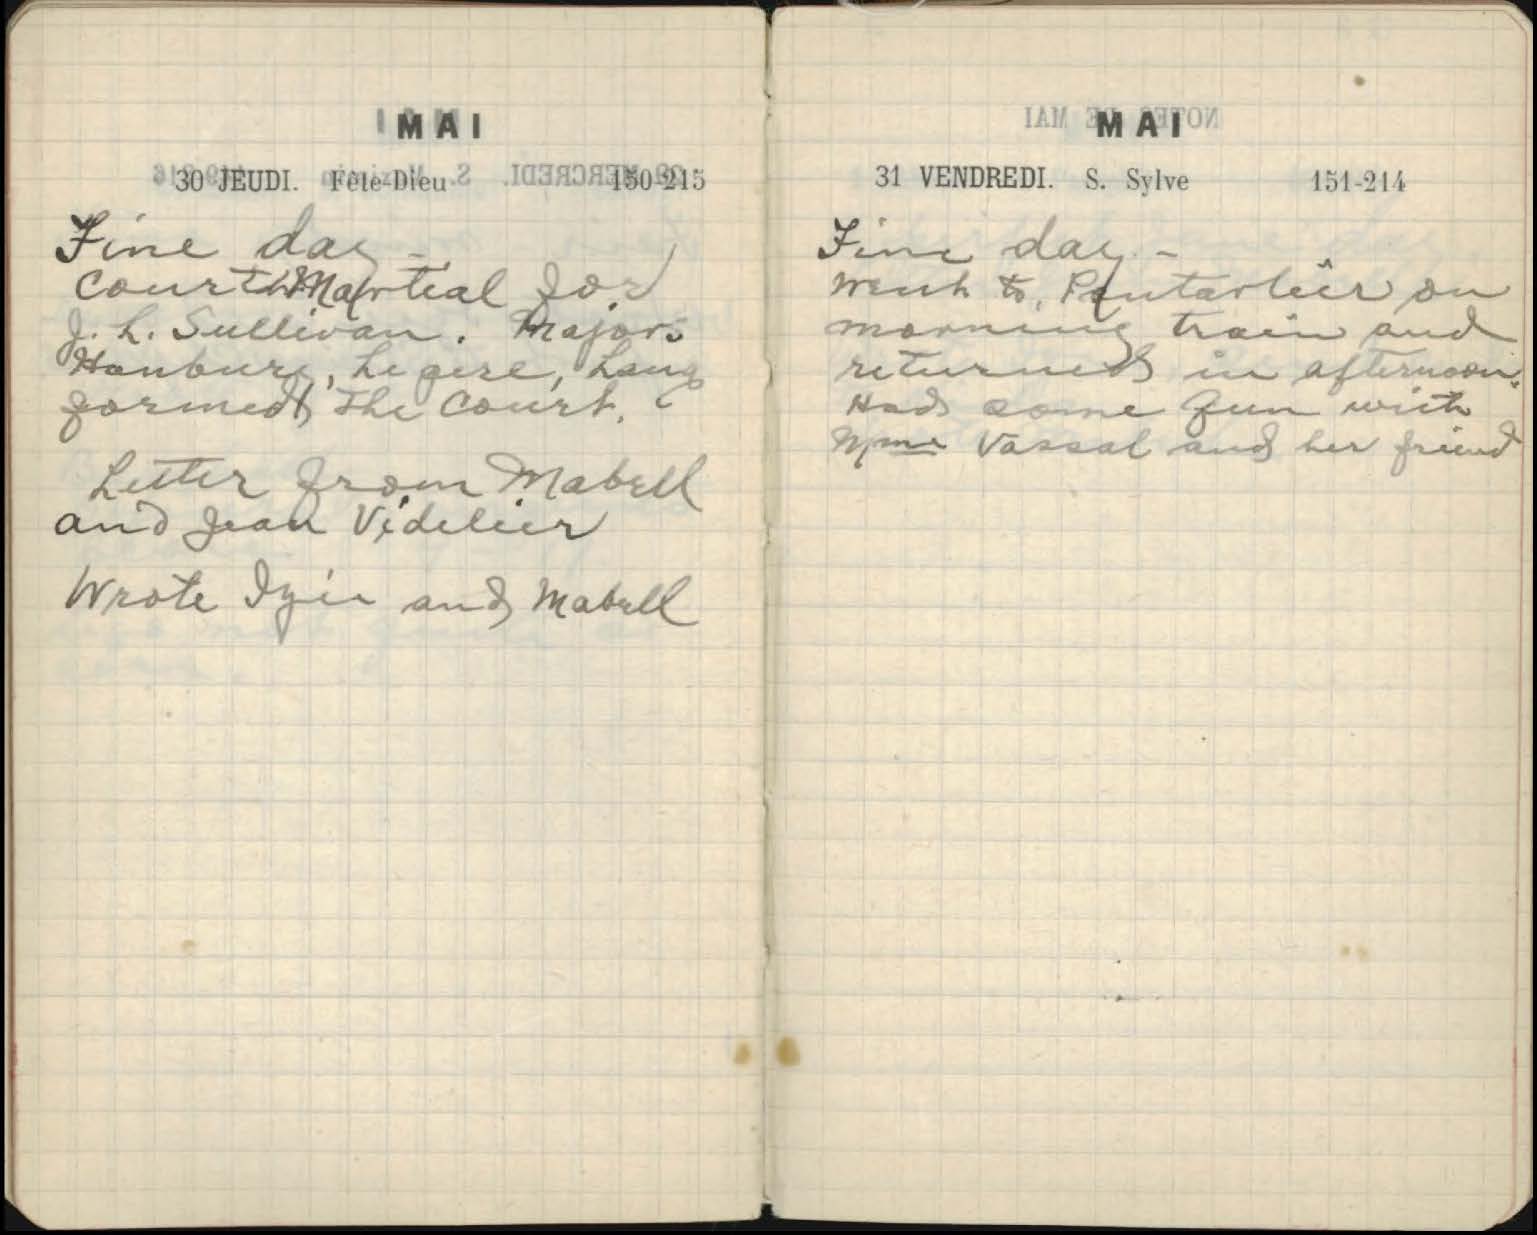 MAI
30 JEUDI. Fête-Dieu 150-215
Fine day -
Court Martial for
J. L. Sullivan. Majors
Hanbury, Legere, Lang
formed the Court.
Letter from Mabell
and Jean Videlier
Wrote and Mabell
MAI
31 VENDREDI. S. Sylve 151-214
Fine day. -
Went to Pontarlier on
morning train and
returned in afternoon.
Had some fun with
Mme Vassal and her friend